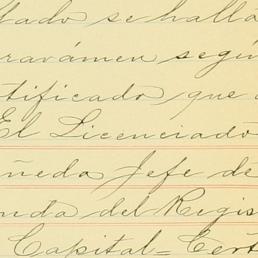 tado se hallá
ravámen segú
tificado que
El Licenciado
ñeda Jefe de
nda del Regis
Capital=Cert